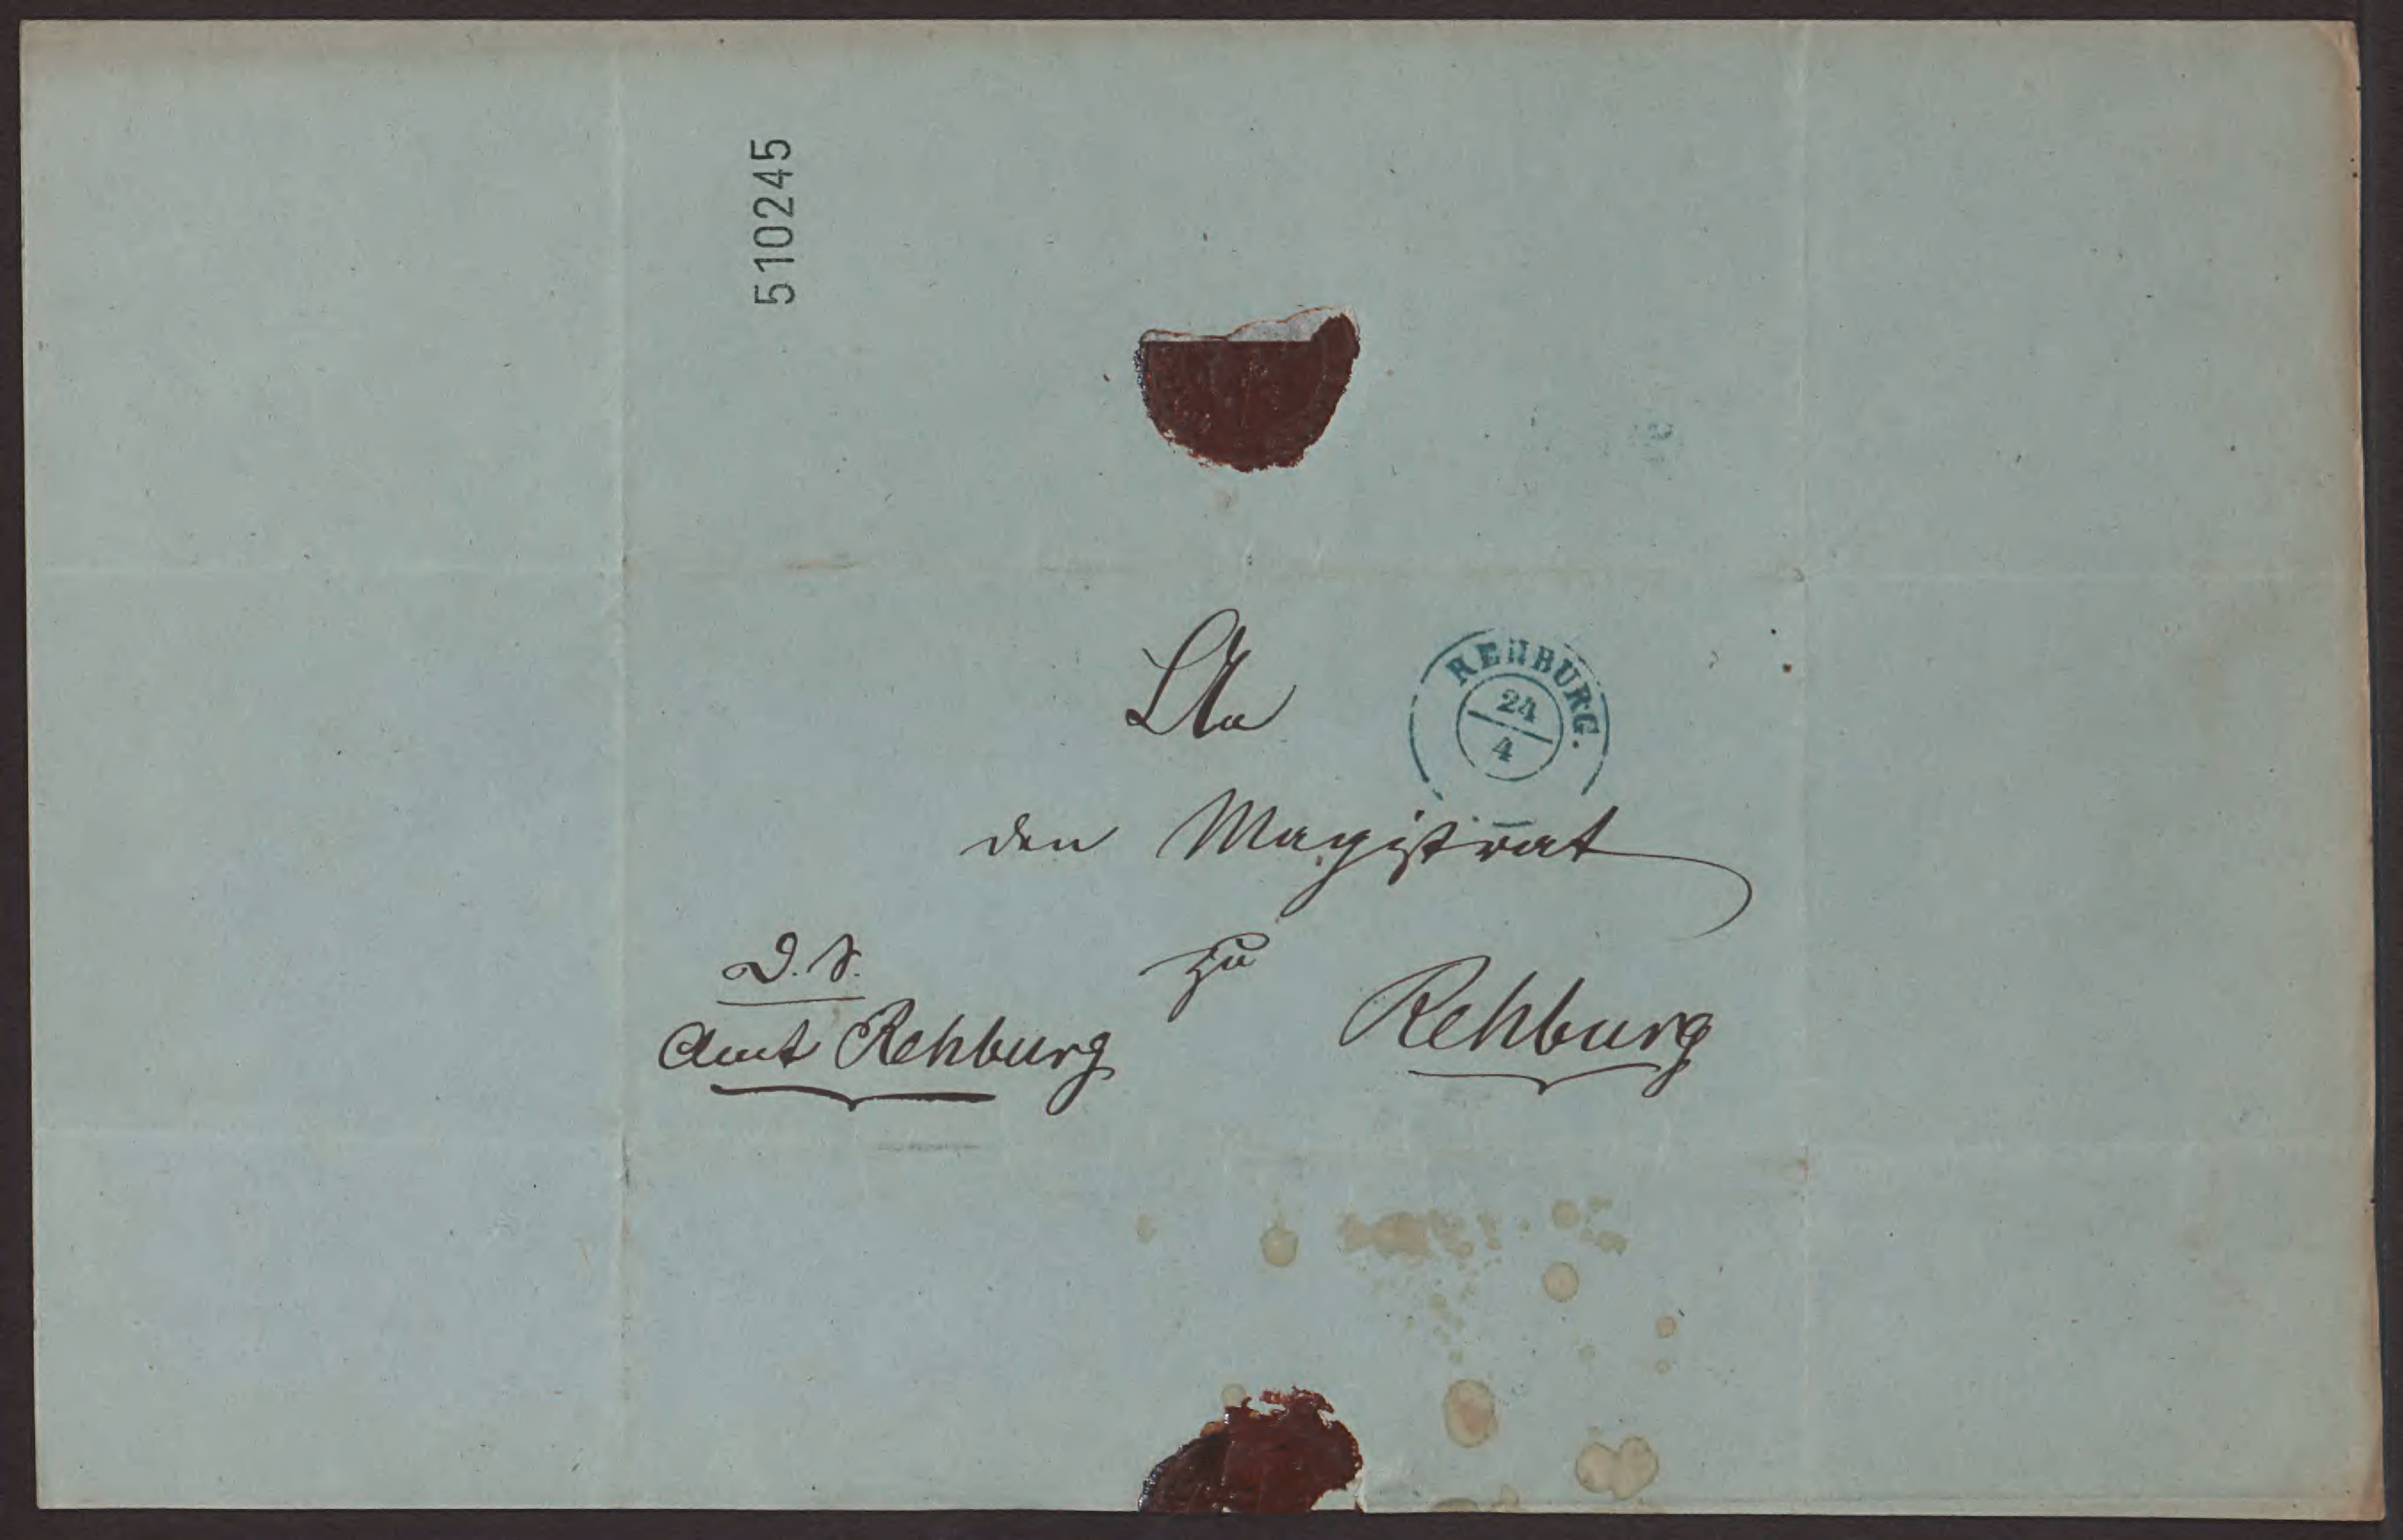 510245
An
REHBURG.
24
4
den Magistrat
D. S.
zu
Amt Rehburg
Rehburg